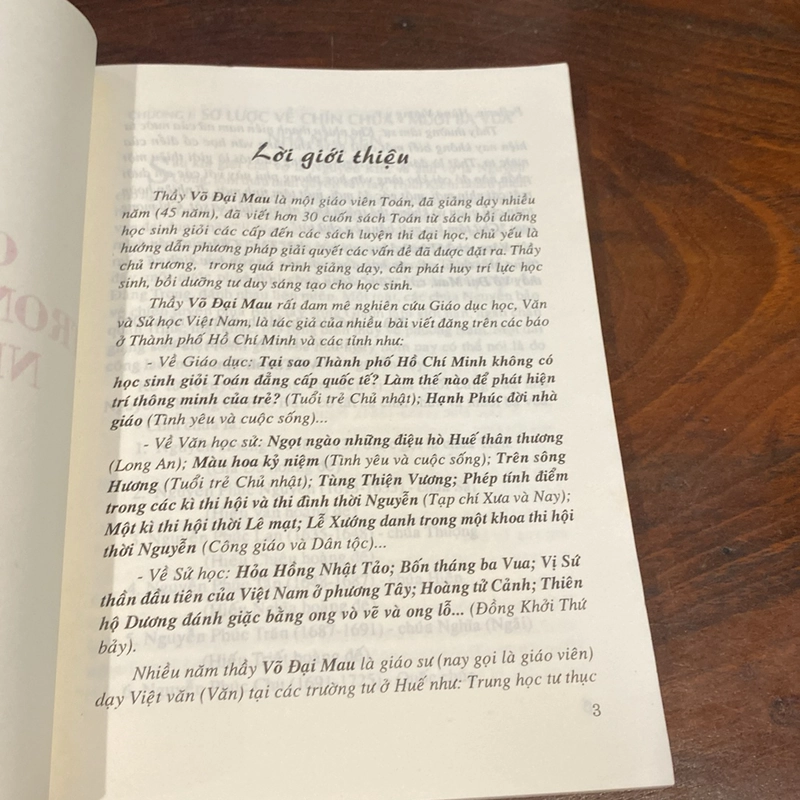 Lời giới thiệu
Thầy Võ Đại Mau là một giáo viên Toán, đã giảng dạy nhiều
năm (45 năm), đã viết hơn 30 cuốn sách Toán từ sách bồi dưỡng
học sinh giỏi các cấp đến các sách luyện thi đại học, chủ yếu là
hướng dẫn phương pháp giải quyết các vấn đề đã được đặt ra. Thầy
chủ trương, trong quá trình giảng dạy, cần phát huy trí lực học
sinh, bồi dưỡng tư duy sáng tạo cho học sinh.
Thầy Võ Đại Mau rất đam mê nghiên cứu Giáo dục học, Văn
và Sử học Việt Nam, là tác giả của nhiều bài viết đăng trên các báo
ở Thành phố Hồ Chí Minh và các tỉnh như:
- Về Giáo dục: Tại sao Thành phố Hồ Chí Minh không có
học sinh giỏi Toán đẳng cấp quốc tế? Làm thế nào để phát hiện
trí thông minh của trẻ? (Tuổi trẻ Chủ nhật); Hạnh Phúc đời nhà
giáo (Tình yêu và cuộc sống)...
- Về Văn học sử: Ngọt ngào những điệu hò Huế thân thương
(Long An); Màu hoa kỷ niệm (Tình yêu và cuộc sống); Trên sông
Hương (Tuổi trẻ Chủ nhật); Tùng Thiện Vương; Phép tính điểm
trong các kì thi hội và thi đình thời Nguyễn (Tạp chí Xưa và Nay);
Một kì thi hội thời Lê mạt; Lễ Xướng danh trong một khoa thi hội
thời Nguyễn (Công giáo và Dân tộc)...
- Về Sử học: Hỏa Hồng Nhật Tảo; Bốn tháng ba Vua; Vị Sứ
thần đầu tiên của Việt Nam ở phương Tây; Hoàng tử Cảnh; Thiên
hộ Dương đánh giặc bằng ong vò vẽ và ong lỗ... (Đồng Khởi Thứ
bảy).
Nhiều năm thầy Võ Đại Mau là giáo sư (nay gọi là giáo viên)
dạy Việt văn (Văn) tại các trường tư ở Huế như: Trung học tư thục
3